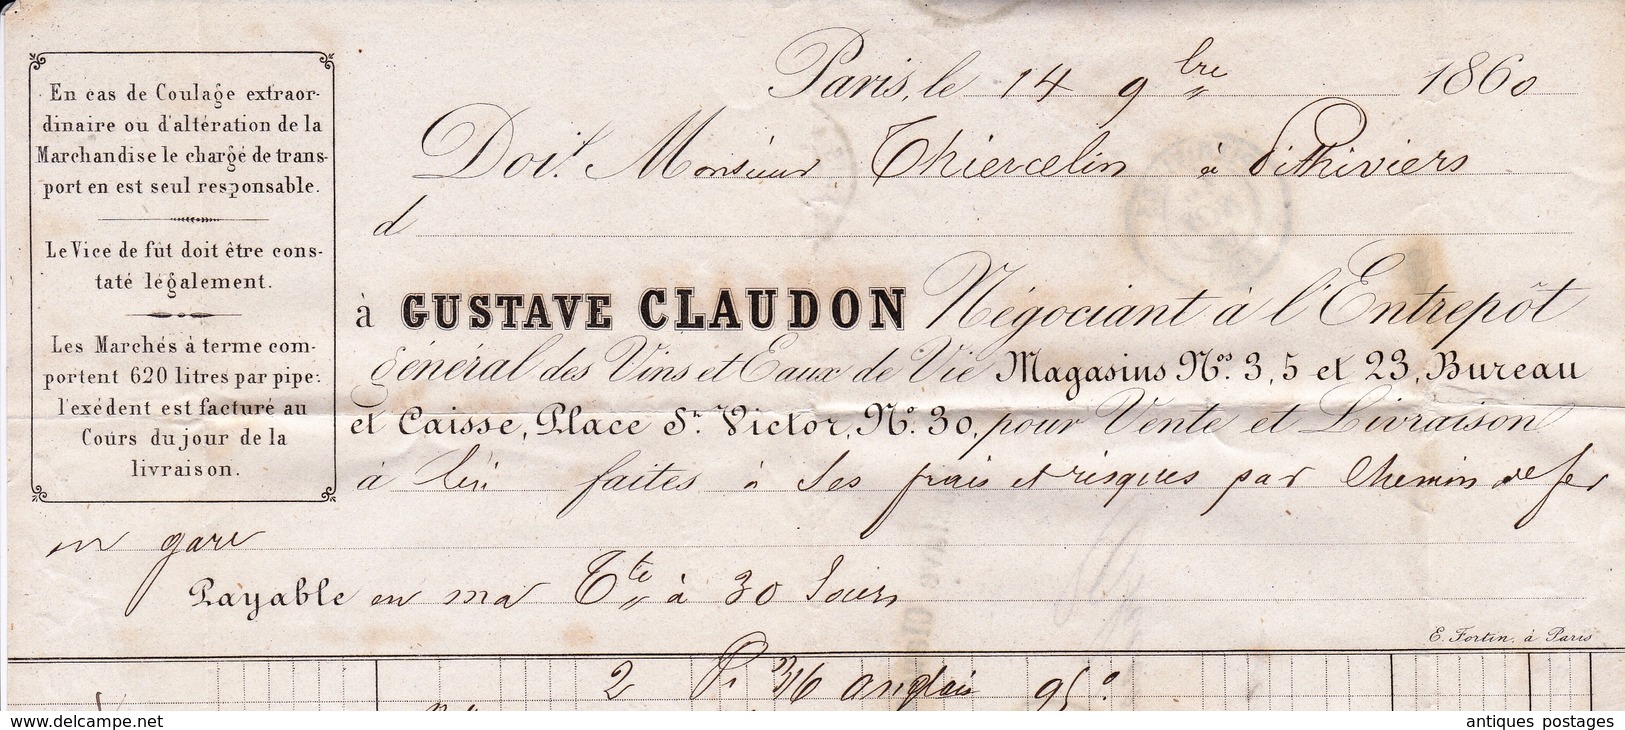 En cas de Coulage extraor-
dinaire ou d'altération de la
Marchandise le chargé de trans-
port en est seul responsable.
Le Vice de fût doit être cons-
taté légalement.
Les Marchés à terme com-
portent 620 litres par pipe:
l'exédent est facturé au
Cours du jour de la
livraison.
Paris, le 14 9bre 1860
Doit Monsieur Thiercelin à Pithiviers
d
à GUSTAVE CLAUDON Négociant à l'Entrepôt
général des Vins et Eaux de Vie Magasins Nos. 3, 5 et 23, Bureau
et Caisse, Place St. Victor, No. 30, pour Vente et Livraison
à lui faites à ses frais et risques par Chemin de fer
en gare
Payable en ma Tte à 30 Jours
E. Fortin, à Paris
2 Pi 3/6 anglais 95°
delcampe.net
antiques postages